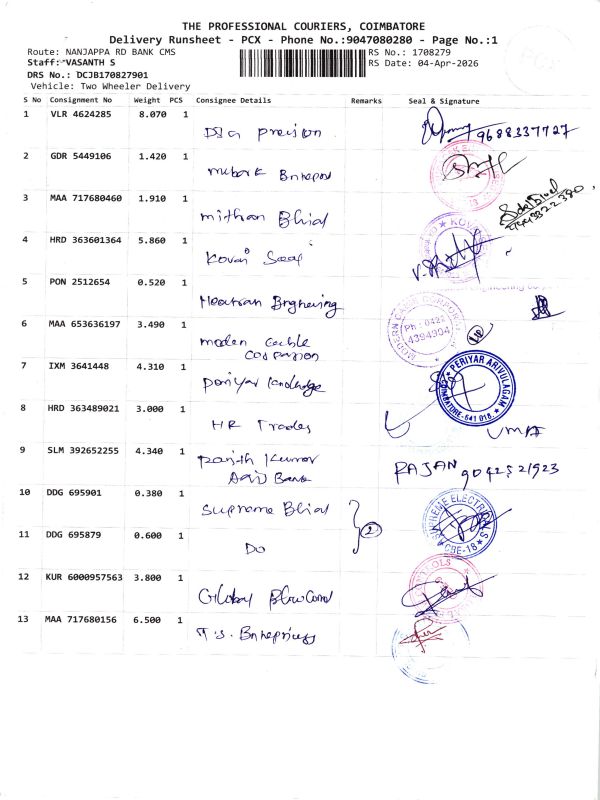 THE PROFESSIONAL COURIERS, COIMBATORE
Delivery Runsheet - PCX - Phone No.:9047080280 - Page No.:1
Route: NANJAPPA RD BANK CMS
RS No.: 1708279
Staff: VASANTH S
RS Date: 04-Apr-2026
DRS No.: DCJB170827901
Vehicle: Two Wheeler Delivery
PCX
S No Consignment No Weight PCS Consignee Details Remarks Seal & Signature
1 VLR 4624285 8.070 1
9688337727
2 GDR 5449106 1.420 1
3 MAA 717680460 1.910 1
mithran Blial
4 HRD 363601364 5.860 1
Kovai
5 PON 2512654 0.520 1
6 MAA 653636197 3.490 1
modern cable
MODERN CABLE CORPORATION
Ph : 0422
4394304
7 IXM 3641448 4.310 1
periyar
PERIYAR ARIVULAGAM
COIMBATORE - 641 018.
8 HRD 363489021 3.000 1
HR Trades
UMA
9 SLM 392652255 4.340 1
Ranjith Kumar
Bank
RAJAN
10 DDG 695901 0.380 1
Supreme Blial
2
SUPREME ELECTRICALS
CBE-18
11 DDG 695879 0.600 1
Do
12 KUR 6000957563 3.800 1
Global
13 MAA 717680156 6.500 1
T.S.